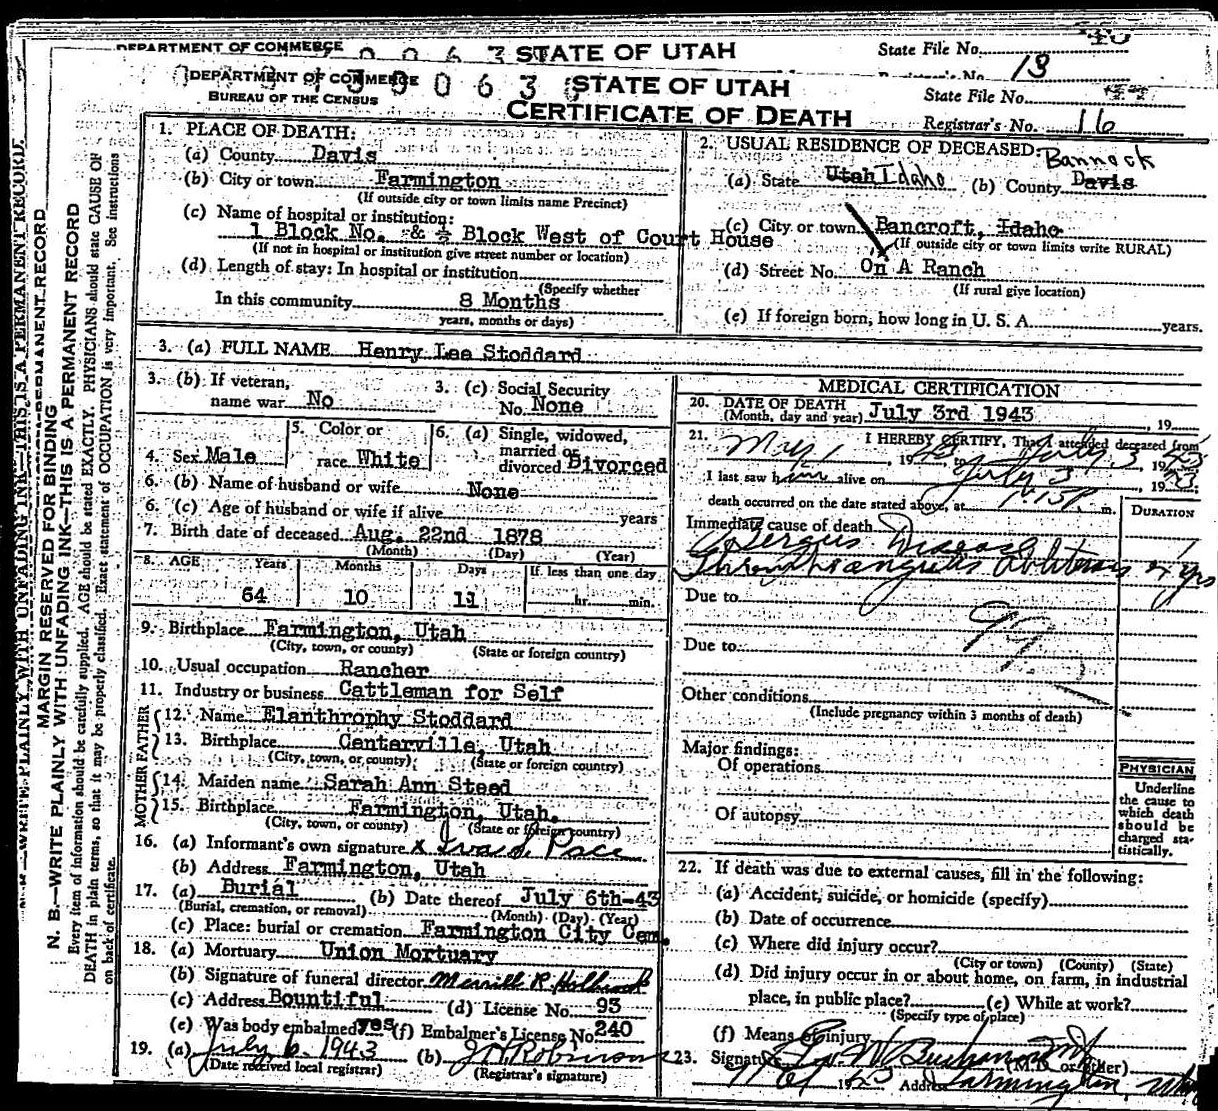 DEPARTMENT OF COMMERCE
STATE OF UTAH
State File No.
DEPARTMENT OF COMMERCE
BUREAU OF THE CENSUS
STATE OF UTAH
CERTIFICATE OF DEATH
Registrar's No. 13
State File No.
Registrar's No. 16
1. PLACE OF DEATH:
(a) County Davis
(b) City or town Farmington
(If outside city or town limits name Precinct)
(c) Name of hospital or institution:
1 Block No. & ½ Block West of Court House
(If not in hospital or institution give street number or location)
(d) Length of stay: In hospital or institution
(Specify whether
In this community 8 Months
years, months or days)
2. USUAL RESIDENCE OF DECEASED:
Bannock
(a) State Utah Idaho (b) County Davis
(c) City or town Bancroft, Idaho
(If outside city or town limits write RURAL)
(d) Street No. On A Ranch
(If rural give location)
(e) If foreign born, how long in U. S. A. years.
3. (a) FULL NAME Henry Lee Stoddard
3. (b) If veteran, name war No
3. (c) Social Security No. None
4. Sex Male
5. Color or race White
6. (a) Single, widowed, married or divorced Divorced
6. (b) Name of husband or wife None
6. (c) Age of husband or wife if alive years
7. Birth date of deceased Aug. 22nd 1878
(Month) (Day) (Year)
8. AGE Years Months Days If less than one day
64 10 11 hr. min.
9. Birthplace Farmington, Utah
(City, town, or county) (State or foreign country)
10. Usual occupation Rancher
11. Industry or business Cattleman for Self
FATHER
12. Name Elanthrophy Stoddard
13. Birthplace Centerville, Utah
(City, town, or county) (State or foreign country)
MOTHER
14. Maiden name Sarah Ann Steed
15. Birthplace Farmington, Utah.
(City, town, or county) (State or foreign country)
16. (a) Informant's own signature x Iva S. Pace
(b) Address Farmington, Utah
17. (a) Burial (b) Date thereof July 6th-43
(Burial, cremation, or removal) (Month) (Day) (Year)
(c) Place: burial or cremation Farmington City Cem.
18. (a) Mortuary Union Mortuary
(b) Signature of funeral director Merrill R Holbrook
(c) Address Bountiful (d) License No. 93
(e) Was body embalmed yes (f) Embalmer's License No. 240
19. (a) July 6. 1943 (b) J H Robinson
(Date received local registrar) (Registrar's signature)
MEDICAL CERTIFICATION
20. DATE OF DEATH
(Month, day and year) July 3rd 1943, 19
21. I HEREBY CERTIFY, That I attended deceased from
May 1, 1943, to July 3, 1943
I last saw him alive on July 3, 1943
death occurred on the date stated above, at 1:15 P. m.
DURATION
Immediate cause of death
Thromboangiitis obliterans yrs
Due to
Due to
Other conditions
(Include pregnancy within 3 months of death)
Major findings:
Of operations
Of autopsy
PHYSICIAN
Underline the cause to which death should be charged statistically.
22. If death was due to external causes, fill in the following:
(a) Accident, suicide, or homicide (specify)
(b) Date of occurrence
(c) Where did injury occur?
(City or town) (County) (State)
(d) Did injury occur in or about home, on farm, in industrial
place, in public place? (e) While at work?
(Specify type of place)
(f) Means of injury
23. Signature (M.D. or other)
Address Farmington, Utah
MARGIN RESERVED FOR BINDING
N. B.—WRITE PLAINLY WITH UNFADING INK—THIS IS A PERMANENT RECORD
Every item of information should be carefully supplied. AGE should be stated EXACTLY. PHYSICIANS should state CAUSE OF
DEATH in plain terms, so that it may be properly classified. Exact statement of OCCUPATION is very important. See instructions
on back of certificate.